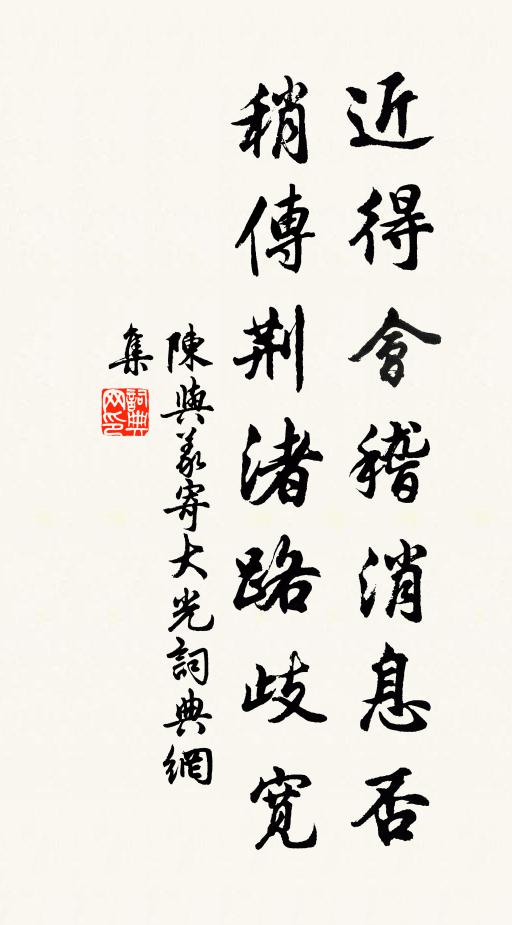 近得會稽消息否
稍傳荆渚路歧寬
陳與義寄大光詞典網
集
詞典網印